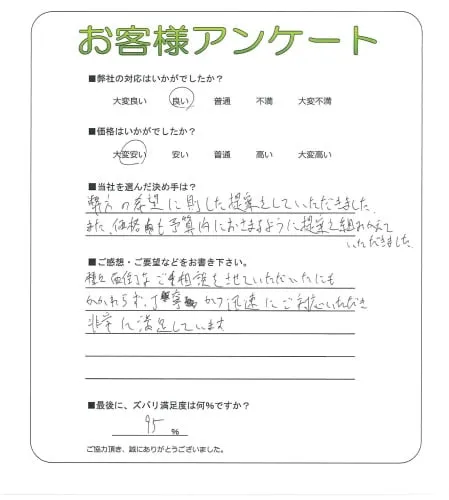 お客様アンケート
■弊社の対応はいかがでしたか?
大変良い 良い 普通 不満 大変不満
■価格はいかがでしたか?
大変安い 安い 普通 高い 大変高い
■当社を選んだ決め手は?
弊方の希望に則した提案をしていただきました。
また、価格も予算内におさまるように提案を組みかえて
いただきました
■ご感想・ご要望などをお書き下さい。
種々面倒なご相談をさせていただいたにも
かかわらず、丁寧かつ迅速にご対応いただき
非常に満足しています
■最後に、ズバリ満足度は何%ですか?
95 %
ご協力頂き、誠にありがとうございました。